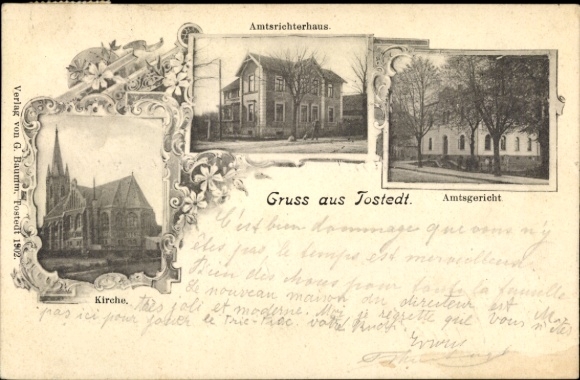 Amtsrichterhaus.
Verlag von G. Baumm, Tostedt 1902.
Gruss aus Tostedt.
Amtsgericht
Kirche.
C'est bien dommage que vous n'y
êtes pas, le temps est merveilleux
Bien des choses pour toute la famille
Le nouveau maison du directeur est
très joli et moderne. je regrette que vous n'êtes
pas ici pour jouer le Tric-Trac. votre